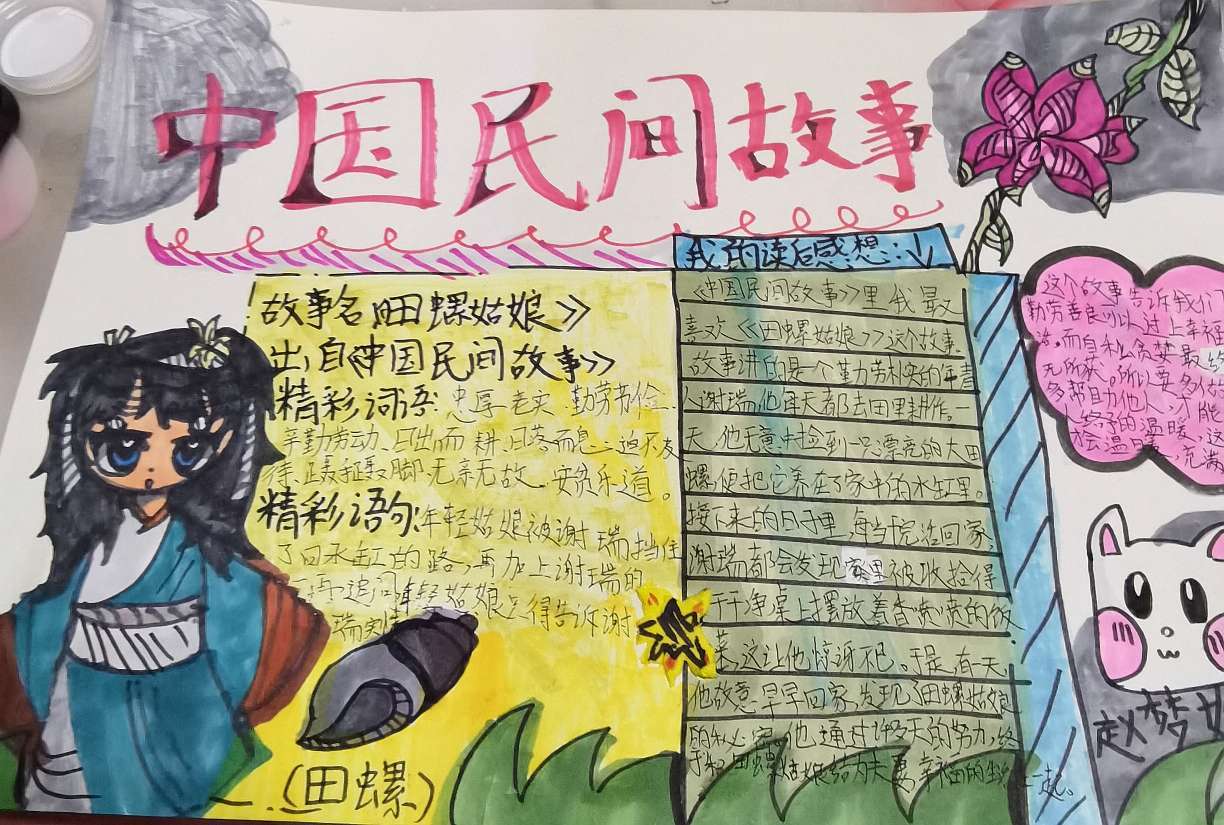 中国民间故事
故事名《田螺姑娘》
出自《中国民间故事》
精彩词语:忠厚老实 勤劳节俭
辛勤劳动、日出而耕、日落而息、迫不及
待、蹑手蹑脚、无亲无故、安贫乐道。
精彩语句:年轻姑娘被谢瑞挡住
了回水缸的路,再加上谢瑞的
再追问年轻姑娘只得告诉谢
瑞实情
(田螺)
我的读后感想:
《中国民间故事》里我最
喜欢《田螺姑娘》这个故事.
故事讲的是一个勤劳朴实的年青
人谢瑞他每天都去田里耕作.一
天,他无意中捡到一只漂亮的大田
螺,便把它养在了家中的水缸里。
接下来的日子里,每当忙活回家,
谢瑞都会发现家里被收拾得
干干净桌上摆放着香喷喷的饭
菜,这让他惊讶不已。于是,有一天,
他故意早早回家,发现了田螺姑娘
的秘密。他通过许多天的努力,终
于和田螺姑娘结为夫妻幸福的生一起。
这个故事告诉我们
勤劳善良可以过上幸福
活,而自私贪婪最
无所获。所以要多
多帮助他人,才能
终予的温暖,这
会温暖,充满
赵梦